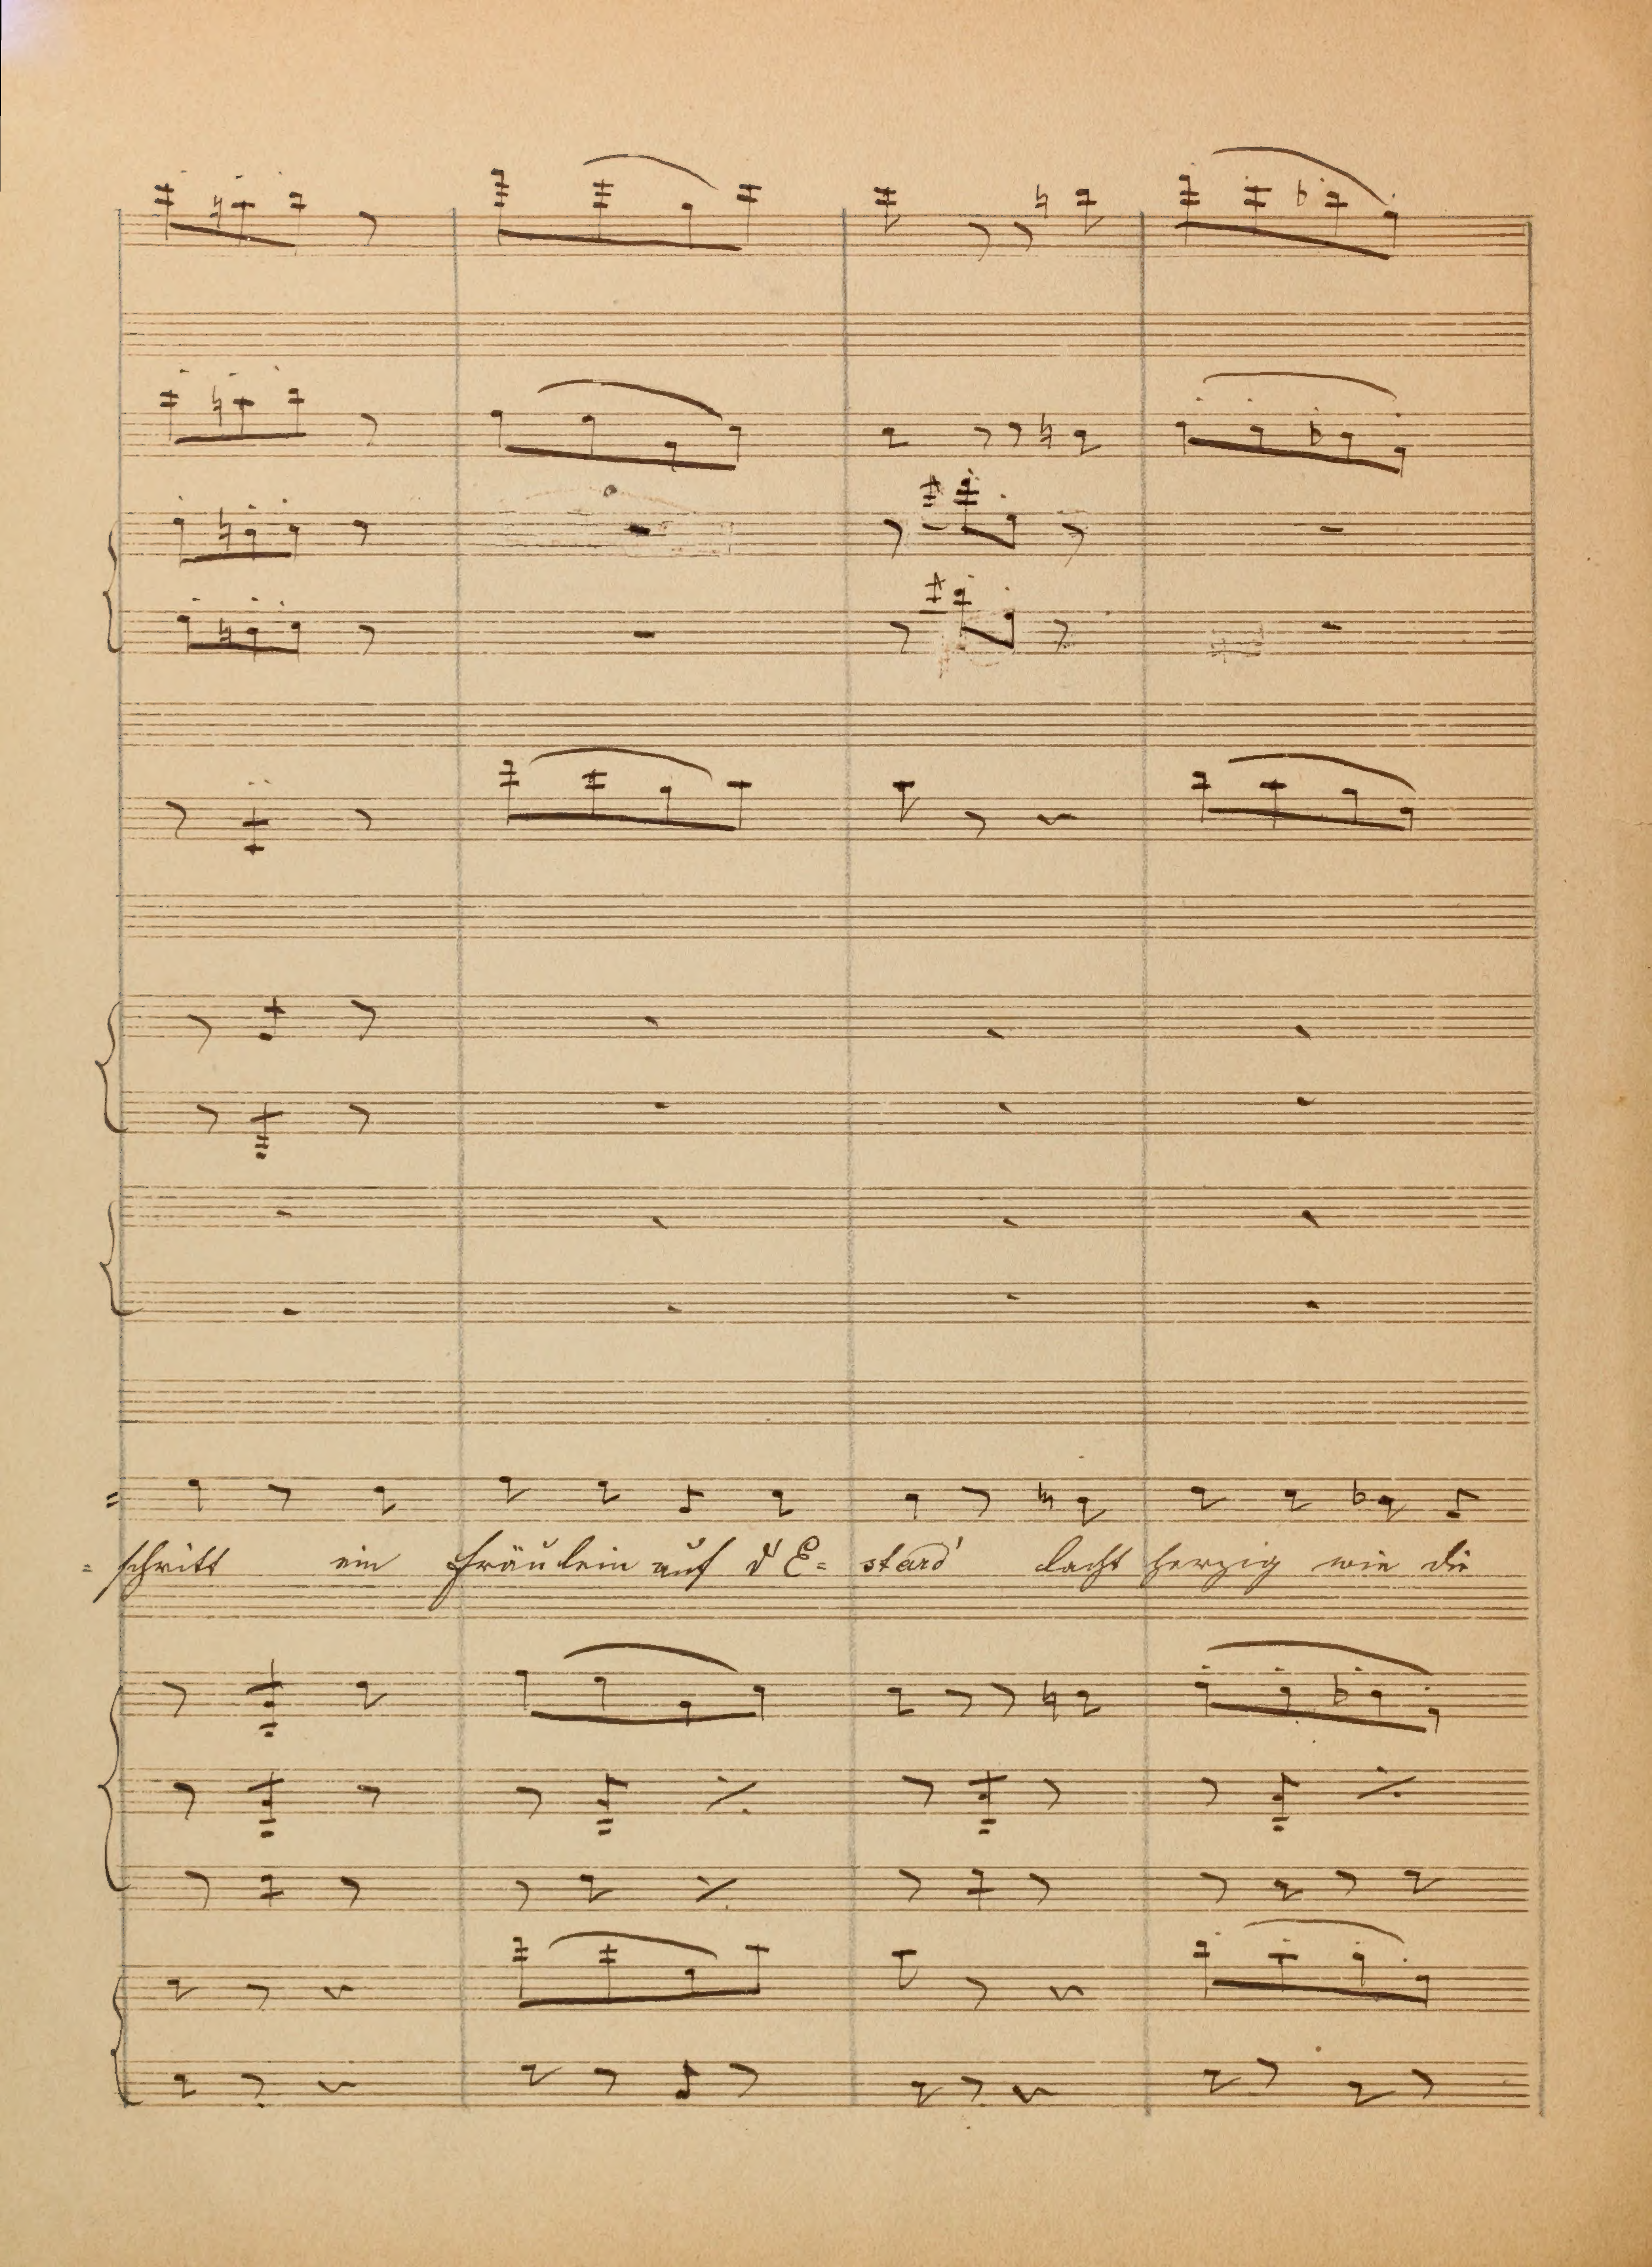 = schritt ein Fräulein auf d E= strad' lacht herzig wie die